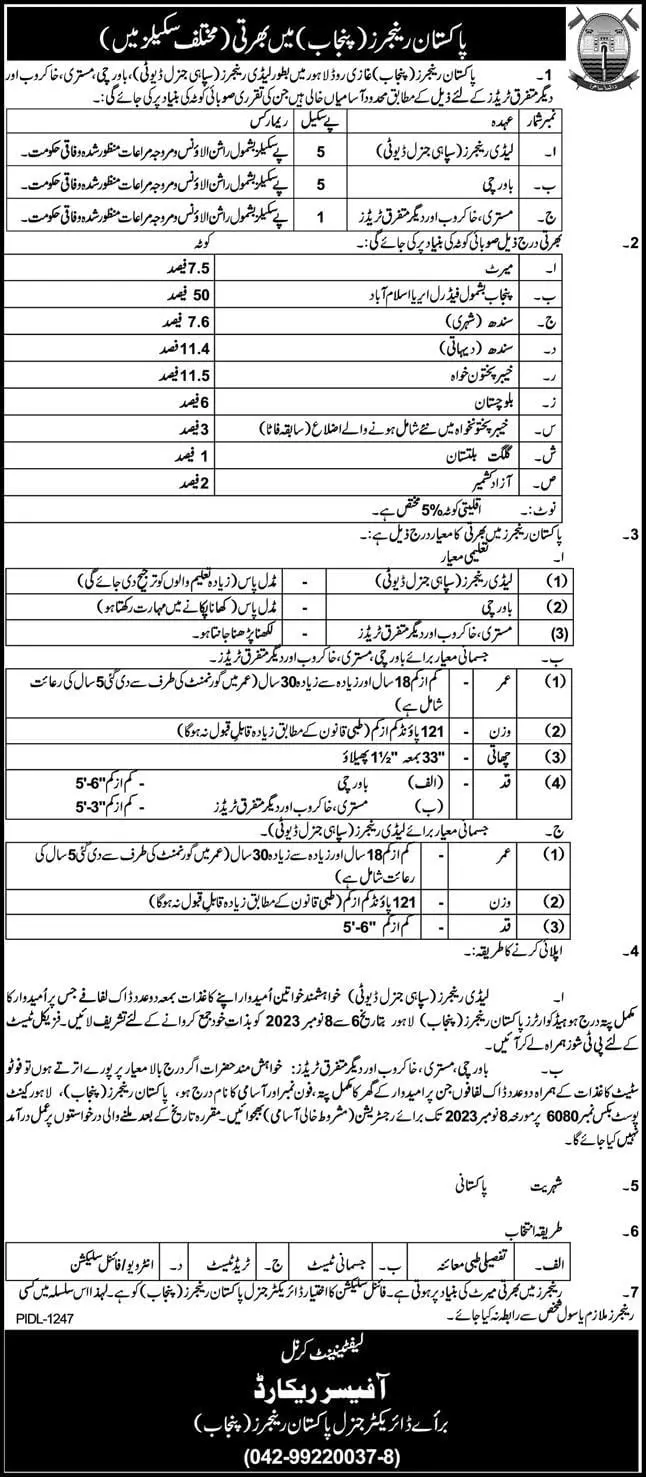 پاکستان رینجرز (پنجاب) میں بھرتی (مختلف سکیلز میں)
1۔ پاکستان رینجرز (پنجاب) غازی روڈ لاہور میں بطور لیڈی رینجرز (سپاہی جنرل ڈیوٹی)، باورچی، مستری، خاکروب اور
دیگر متفرق ٹریڈز کے لئے ذیل کے مطابق محدود آسامیاں خالی ہیں جن کی تقرری صوبائی کوٹہ کی بنیاد پر کی جائے گی:۔
نمبر شمار عہدہ پے سکیل ریمارکس
ا۔ لیڈی رینجرز (سپاہی جنرل ڈیوٹی) 5 پے سکیلز بشمول راشن الاؤنس و مروجہ مراعات منظور شدہ وفاقی حکومت۔
ب۔ باورچی 5 پے سکیلز بشمول راشن الاؤنس و مروجہ مراعات منظور شدہ وفاقی حکومت۔
ج۔ مستری، خاکروب اور دیگر متفرق ٹریڈز 1 پے سکیلز بشمول راشن الاؤنس و مروجہ مراعات منظور شدہ وفاقی حکومت۔
2۔ بھرتی درج ذیل صوبائی کوٹہ کی بنیاد پر کی جائے گی:۔ کوٹہ
ا۔ میرٹ 7.5 فیصد
ب۔ پنجاب بشمول فیڈرل ایریا اسلام آباد 50 فیصد
ج۔ سندھ (شہری) 7.6 فیصد
د۔ سندھ (دیہاتی) 11.4 فصد
ر۔ خیبر پختون خواہ 11.5 فصد
ز۔ بلوچستان 6 فیصد
س۔ خیبر پختونخواہ میں نئے شامل ہونے والے اضلاع (سابقہ فاٹا) 3 فیصد
ش۔ گلگت بلتستان 1 فیصد
ص۔ آزاد کشمیر 2 فیصد
نوٹ:۔ اقلیتی کوٹہ 5% مختص ہے۔
3۔ پاکستان رینجرز میں بھرتی کا معیار درج ذیل ہے:۔
ا۔ تعلیمی معیار
(1) لیڈی رینجرز (سپاہی جنرل ڈیوٹی) - مڈل پاس (زیادہ تعلیم والوں کو ترجیح دی جائے گی)
(2) باورچی - مڈل پاس (کھانا پکانے میں مہارت رکھتا ہو)
(3) مستری، خاکروب اور دیگر متفرق ٹریڈز - لکھنا پڑھنا جانتا ہو۔
ب۔ جسمانی معیار برائے باورچی، مستری، خاکروب اور دیگر متفرق ٹریڈز۔
(1) عمر - کم از کم 18 سال اور زیادہ سے زیادہ 30 سال (عمر میں گورنمنٹ کی طرف سے دی گئی 5 سال کی رعائت
شامل ہے)
(2) وزن - 121 پاؤنڈ کم از کم (طبی قانون کے مطابق زیادہ قابل قبول نہ ہوگا)
(3) چھاتی - 33" بمعہ 1½" پھیلاؤ
(4) قد - (الف) باورچی - کم از کم 5'-6"
(ب) مستری، خاکروب اور دیگر متفرق ٹریڈز - کم از کم 5'-3"
ج۔ جسمانی معیار برائے لیڈی رینجرز (سپاہی جنرل ڈیوٹی)۔
(1) عمر - کم از کم 18 سال اور زیادہ سے زیادہ 30 سال (عمر میں گورنمنٹ کی طرف سے دی گئی 5 سال کی
رعائت شامل ہے)
(2) وزن - 121 پاؤنڈ کم از کم (طبی قانون کے مطابق زیادہ قابل قبول نہ ہوگا)
(3) قد - کم از کم 5'-6"
4۔ اپلائی کرنے کا طریقہ:۔
ا۔ لیڈی رینجرز (سپاہی جنرل ڈیوٹی) خواہشمند خواتین اُمیدوار اپنے کاغذات بمعہ دو عدد ڈاک لفافے جس پر اُمیدوار کا
مکمل پتہ درج ہو ہیڈکوارٹرز پاکستان رینجرز (پنجاب) لاہور بتاریخ 6 سے 8 نومبر 2023 کو بذات خود جمع کروانے کے لئے تشریف لائیں۔ فزیکل ٹیسٹ
کے لئے پی ٹی شوز ہمراہ لے کر آئیں۔
ب۔ باورچی، مستری، خاکروب اور دیگر متفرق ٹریڈز: خواہش مند حضرات اگر درج بالا معیار پر پورے اترتے ہوں تو فوٹو
سٹیٹ کاغذات کے ہمراہ دو عدد ڈاک لفافوں جن پر امیدوار کے گھر کا مکمل پتہ، فون نمبر اور آسامی کا نام درج ہو، پاکستان رینجرز (پنجاب)، لاہور کینٹ
پوسٹ بکس نمبر 6080 پر مورخہ 8 نومبر 2023 تک برائے رجسٹریشن (مشروط خالی آسامی) بھجوائیں۔ مقررہ تاریخ کے بعد ملنے والی درخواستوں پر عمل درآمد
نہیں کیا جائے گا۔
5۔ شہریت پاکستانی
6۔ طریقہ انتخاب
الف۔ تفصیلی طبی معائنہ ب۔ جسمانی ٹیسٹ ج۔ ٹریڈ ٹیسٹ د۔ انٹرویو/فائنل سلیکشن
7۔ رینجرز میں بھرتی میرٹ کی بنیاد پر ہوتی ہے۔ فائنل سلیکشن کا اختیار ڈائریکٹر جنرل پاکستان رینجرز (پنجاب) کو ہے۔ لہذا اس سلسلہ میں کسی
رینجرز ملازم یا سول شخص سے رابطہ نہ کیا جائے۔
PIDL-1247
لیفٹیننٹ کرنل
آفیسر ریکارڈ
برائے ڈائریکٹر جنرل پاکستان رینجرز (پنجاب)
(042-99220037-8)